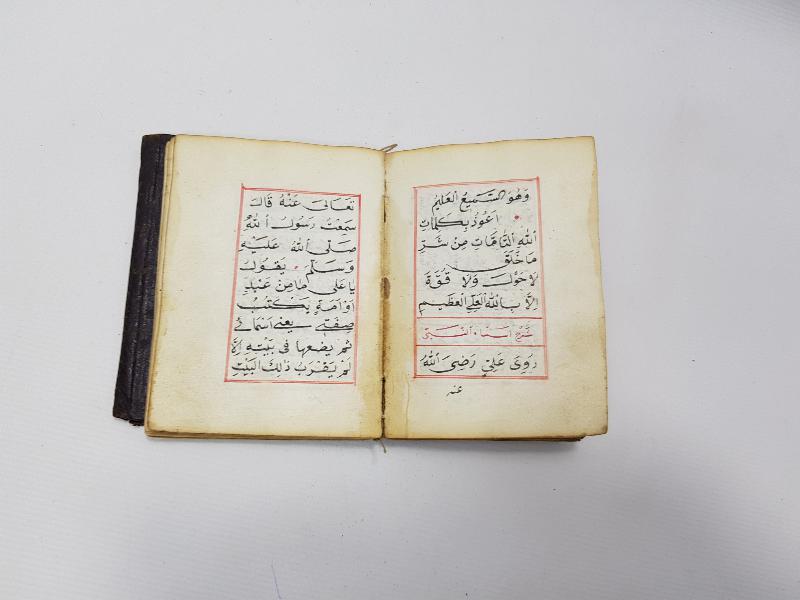 وَهُوَ السَّمِيعُ الْعَلِيمُ
اَعُوذُ بِكَلِمَاتِ
اللهِ التَّامَّاتِ مِنْ شَرِّ
مَا خَلَقَ
لَا حَوْلَ وَلَا قُوَّةَ
اِلَّا بِاللهِ الْعَلِيِّ الْعَظِيمِ
شَرْحِ اَسْمَاءِ النَّبِيِّ
رَوَى عَلِيٌّ رَضِىَ اللهُ
عنه
تَعَالَى عَنْهُ قَالَ
سَمِعْتُ رَسُولَ اللهِ
صَلَّى اللهُ عَلَيْهِ
وَسَلَّمَ يَقُولُ
يَا عَلِى مَا مِنْ عَبْدٍ
اَوْ اَمَةٍ يَكْتُبُ
صِفَتِى يعنى اَسْمَائِى
ثُمَّ يَضَعُهَا فِى بَيْتِهِ اِلَّا
لَمْ يَقْرَبْ ذَلِكَ الْبَيْتَ